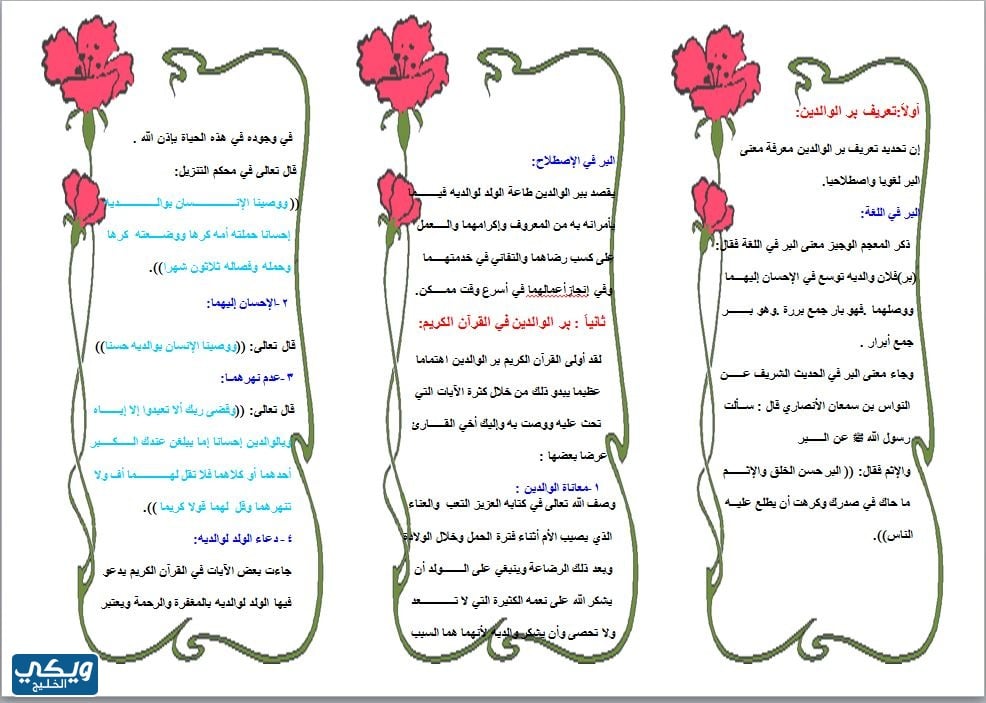 أولاً:تعريف بر الوالدين:
إن تحديد تعريف بر الوالدين معرفة معنى
البر لغويا واصطلاحيا.
البر في اللغة:
ذكر المعجم الوجيز معنى البر في اللغة فقال:
(بر)فلان والديه توسع في الإحسان إليهما
ووصلهما .فهو بار جمع بررة .وهو بر
جمع أبرار .
وجاء معنى البر في الحديث الشريف عن
النواس بن سمعان الأنصاري قال : سألت
رسول الله ﷺ عن البر
والإثم فقال: (( البر حسن الخلق والإثم
ما حاك في صدرك وكرهت أن يطلع عليه
الناس)).
البر في الإصطلاح:
يقصد ببر الوالدين طاعة الولد لوالديه فيما
يأمرانه به من المعروف وإكرامهما والعمل
على كسب رضاهما والتفاني في خدمتهما
وفي إنجازأعمالهما في أسرع وقت ممكن.
ثانياً : بر الوالدين في القرآن الكريم:
لقد أولى القرآن الكريم بر الوالدين اهتماما
عظيما يبدو ذلك من خلال كثرة الآيات التي
تحث عليه ووصت به وإليك أخي القارئ
عرضا بعضها :
١-معاناة الوالدين :
وصف الله تعالى في كتابه العزيز التعب والعناء
الذي يصيب الأم أثناء فترة الحمل وخلال الولادة
وبعد ذلك الرضاعة وينبغي على الولد أن
يشكر الله على نعمه الكثيرة التي لا تعد
ولا تحصى وأن يشكر والديه لأنهما هما السبب
في وجوده في هذه الحياة بإذن الله .
قال تعالى في محكم التنزيل:
(( ووصينا الإنسان بوالديه
إحسانا حملته أمه كرها ووضعته كرها
وحمله وفصاله ثلاثون شهرا)).
٢-الإحسان إليهما:
قال تعالى: ((ووصينا الإنسان بوالديه حسنا))
٣-عدم نهرهما:
قال تعالى: ((وقضى ربك ألا تعبدوا إلا إياه
وبالوالدين إحسانا إما يبلغن عندك الكبر
أحدهما أو كلاهما فلا تقل لهما أف ولا
تنهرهما وقل لهما قولا كريما )).
٤- دعاء الولد لوالديه:
جاءت بعض الآيات في القرآن الكريم يدعو
فيها الولد لوالديه بالمغفرة والرحمة ويعتبر
ويكي
الخليج